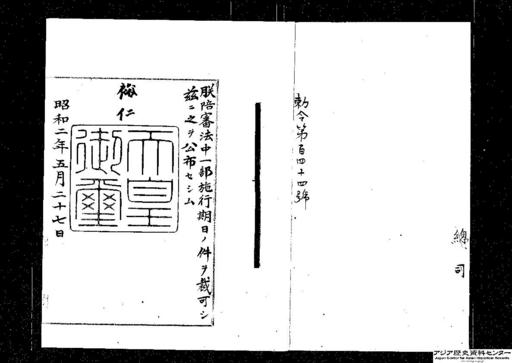 總
司
勅令第百四十四號
朕陪審法中一部施行期日ノ件ヲ裁可シ
茲ニ之ヲ公布セシム
裕仁
天皇
御璽
昭和二年五月二十七日
アジア歴史資料センター
Japan Center for Asian Historical Records